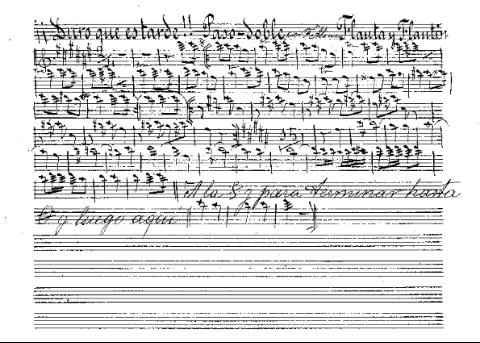 Duro que es tarde!! Paso-doble Flauta y Flautin
A la y para terminar hasta
y luego aqui